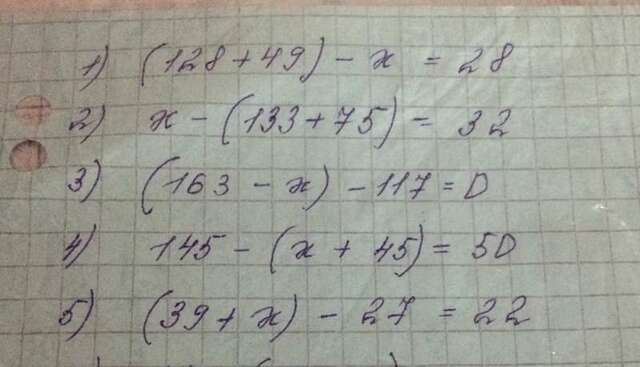 1) (128 + 49) - x = 28
2) x - (133 + 75) = 32
3) (163 - x) - 117 = 0
4) 145 - (x + 45) = 50
5) (39 + x) - 27 = 22